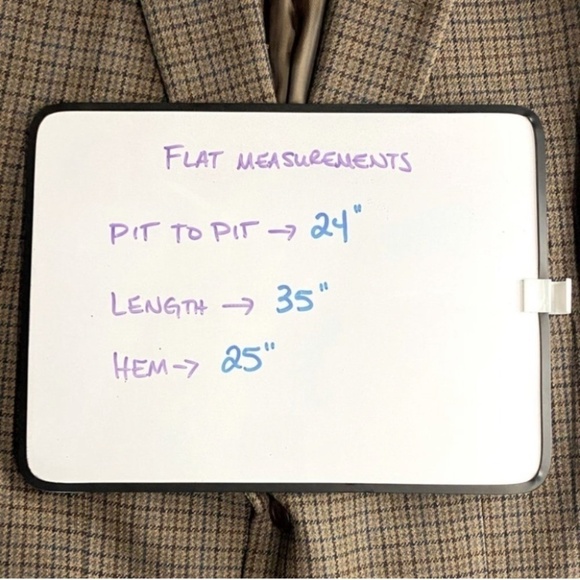 FLAT MEASUREMENTS
PIT TO PIT → 24"
LENGTH → 35"
HEM → 25"